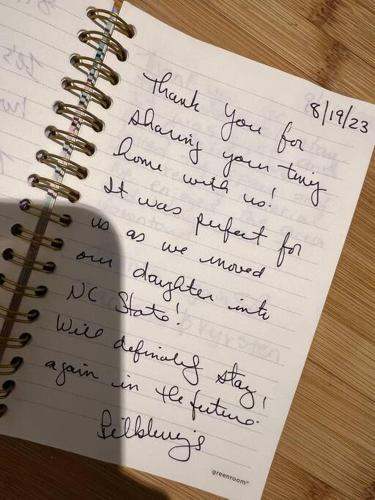 8/19/23
Thank you for
sharing your tiny
home with us!
It was perfect for
us as we moved
our daughter into
NC State!
Will definitely stay
again in the future.
greenroom®